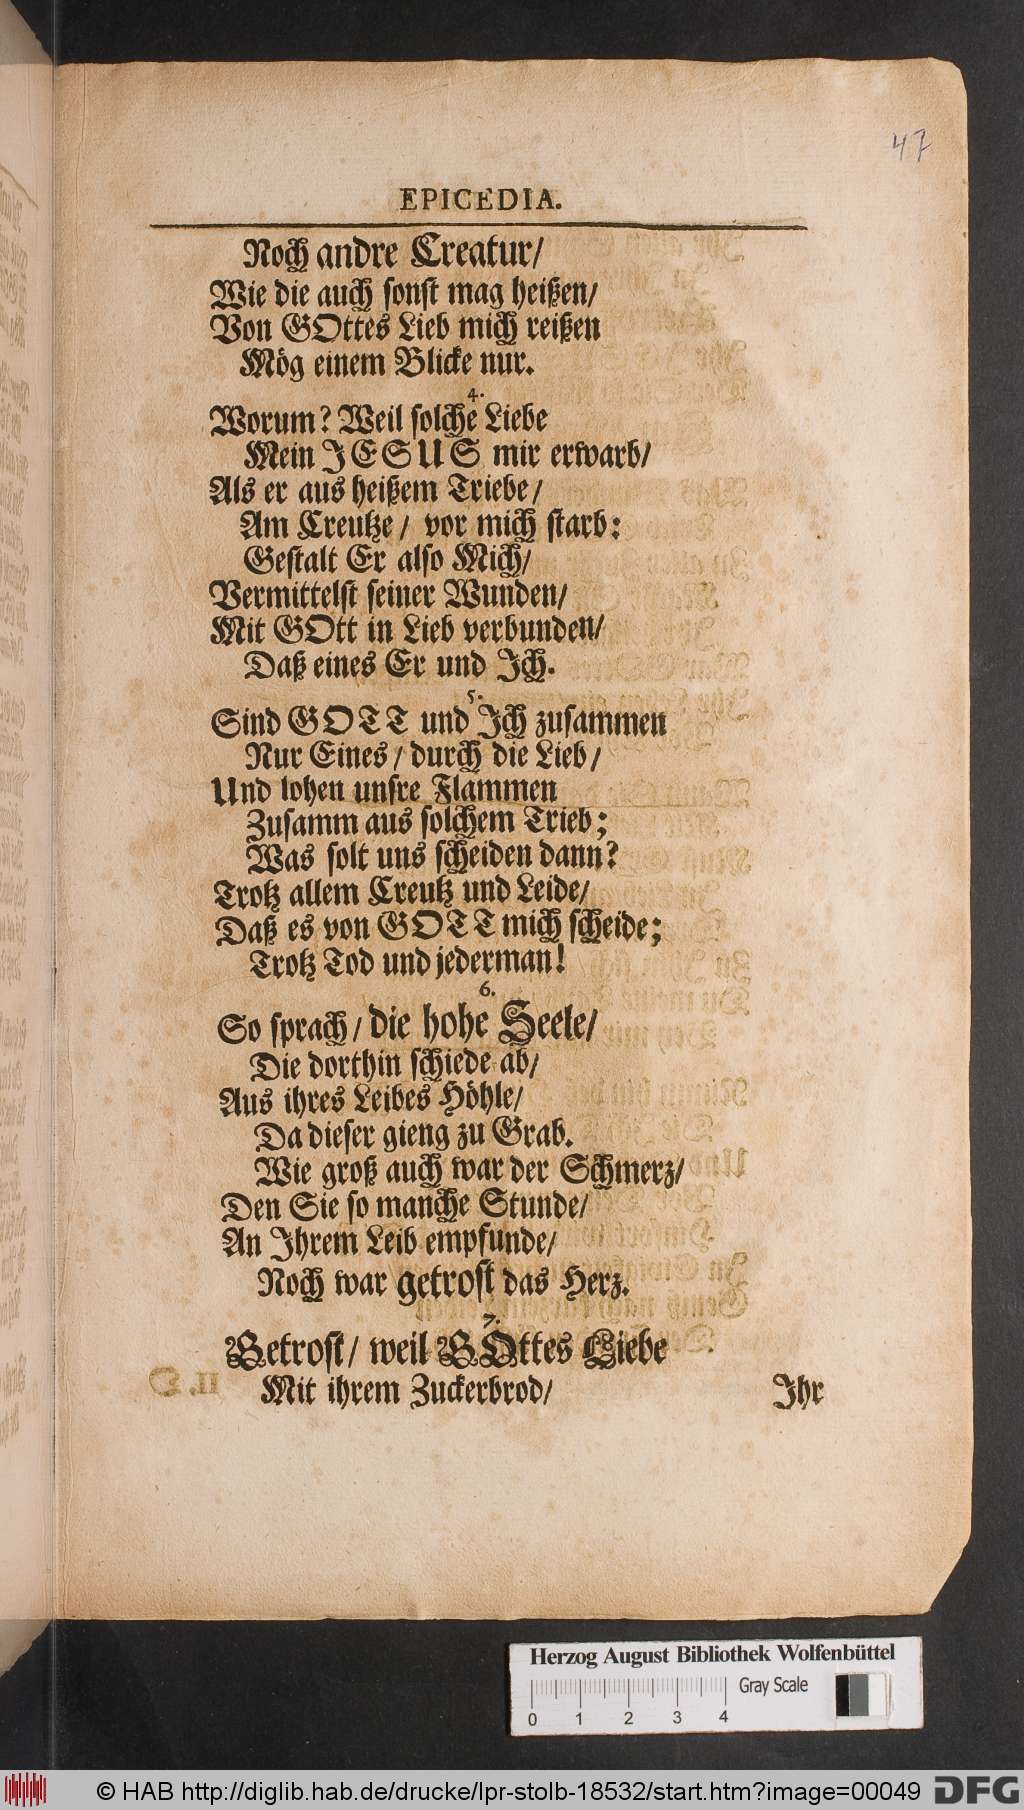 47
EPICEDIA.
Noch andre Creatur/
Wie die auch sonst mag heißen/
Von GOttes Lieb mich reißen
Mög einem Blicke nur.
4.
Worum? Weil solche Liebe
Mein JESUS mir erwarb/
Als er aus heißem Triebe/
Am Creutze/ vor mich starb:
Gestalt Er also Mich/
Vermittelst seiner Wunden/
Mit GOtt in Lieb verbunden/
Daß eines Er und Ich.
5.
Sind GOTT und Ich zusammen
Nur Eines/ durch die Lieb/
Und lohen unsre Flammen
Zusamm aus solchem Trieb;
Was solt uns scheiden dann?
Trotz allem Creutz und Leide/
Daß es von GOTT mich scheide;
Trotz Tod und jederman!
6.
So sprach/ die hohe Seele/
Die dorthin schiede ab/
Aus ihres Leibes Höhle/
Da dieser gieng zu Grab.
Wie groß auch war der Schmerz/
Den Sie so manche Stunde/
An Ihrem Leib empfunde/
Noch war getrost das Herz.
7.
Getrost/ weil GOttes Liebe
Mit ihrem Zuckerbrod/
Ihr
Herzog August Bibliothek Wolfenbüttel
Gray Scale
0 1 2 3 4
© HAB http://diglib.hab.de/drucke/lpr-stolb-18532/start.htm?image=00049
DFG